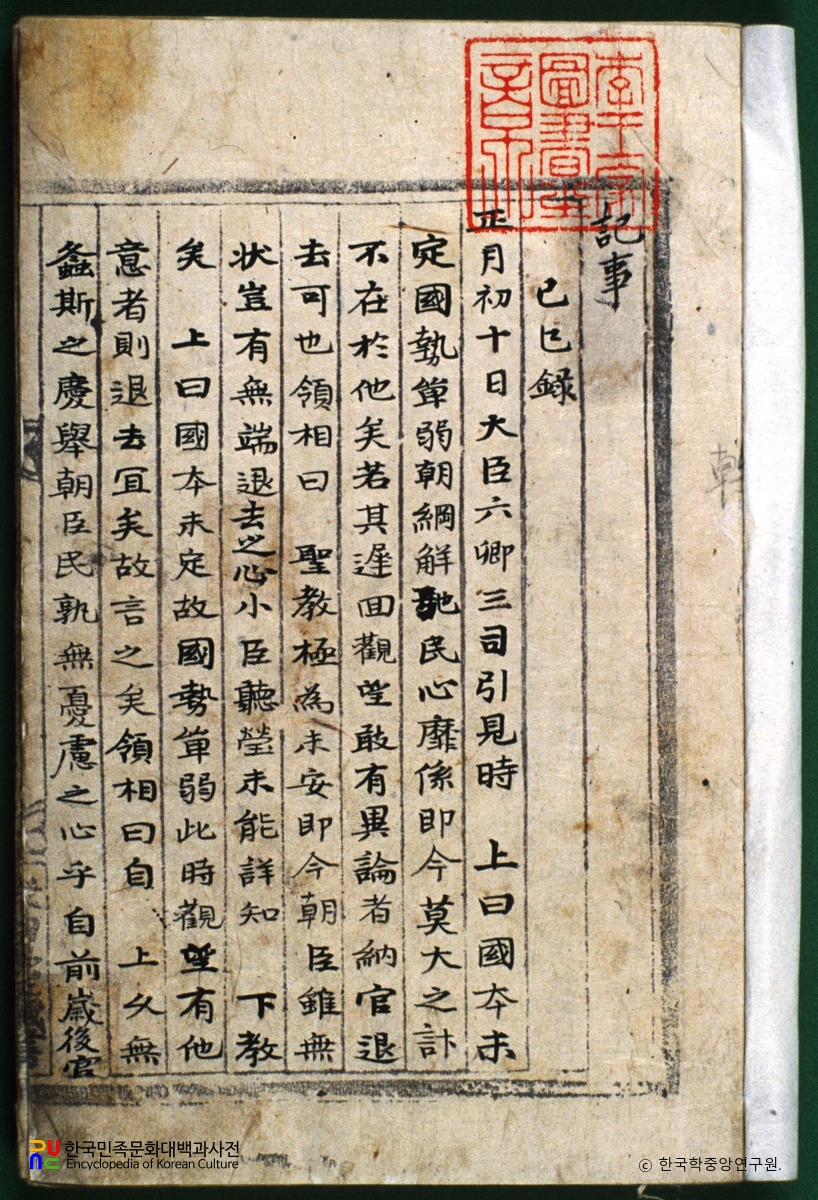 李王家
圖書之
章
記事
己巳錄
正月初十日大臣六卿三司引見時 上曰國夲未
定國勢單弱朝綱解弛民心靡係即今莫大之計
不在於他矣若其遲回觀望敢有異論者納官退
去可也領相曰 聖教極為未安即今朝臣雖無
狀豈有無端退去之心小臣聽瑩未能詳知 下教
矣 上曰國夲未定故國勢單弱此時觀望有他
意者則退去冝矣故言之矣領相曰自 上久無
螽斯之慶舉朝臣民孰無憂慮之心乎自前歲後宮
한국민족문화대백과사전
Encyclopedia of Korean Culture
© 한국학중앙연구원.